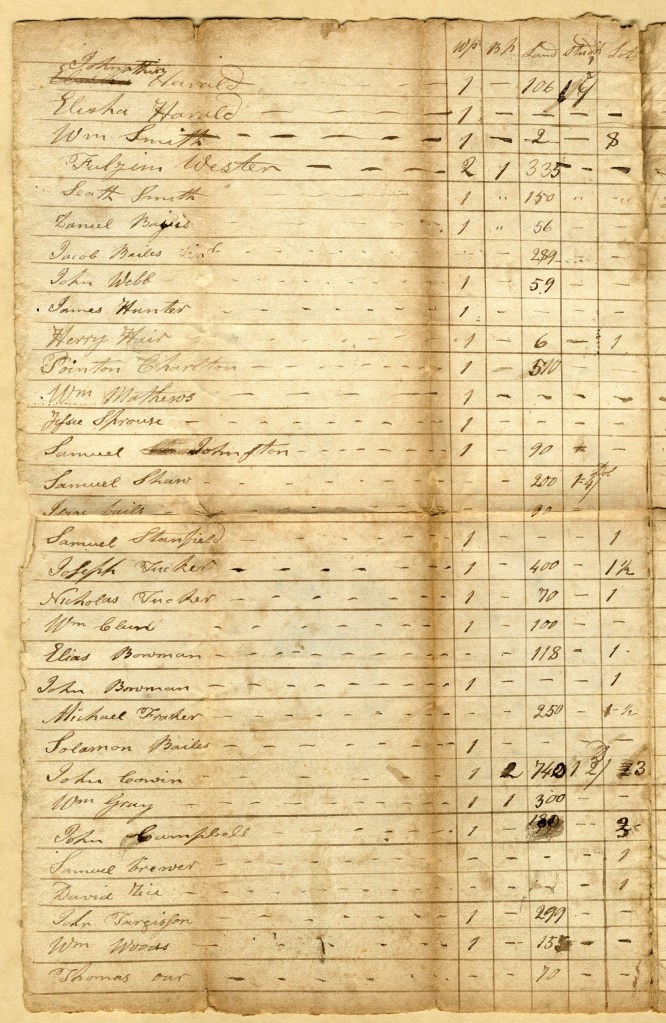 Wp Bp Land Stud Lot
Johnathan Harald 1 - 106 1
Elisha Harald 1 - - - -
Wm Smith 1 - 2 - 8
Fulzim Wester 2 1 335 - -
Seath Smith 1 " 150 " "
Daniel 1 " 56 - -
Jacob Bailes - - 289 - -
John Webb 1 - 59 - -
James Hunter 1 - - - -
Herry Hair 1 - 6 - 1
Pointon Charlton 1 - 510 - -
Wm Mathews 1 - - - -
Jesse Sprouse 1 - - - -
Samuel Johnston 1 - 90 - -
Samuel Shaw 1 - 200
bails - - 90 - -
Samuel Stanfield 1 - - - 1
Joseph Tucker 1 - 400 - 1½
Nicholas Tucker 1 - 70 - 1
Wm 1 - 100 - -
Elias Bowman - - 118 - 1
John Bowman 1 - - - 1
Michael Fraker - - 250 - 1-½
Solamon Bailes 1 - - - -
John Cowin 1 2 740 1 3
Wm Gray - 1 300 - -
John Campbell 1 - 180 -
Samuel brewer - - - - 1
David - - - - 1
John Fargisson 1 - 299 - -
Wm Woods 1 - 155 - -
Thomas our - - 70 - -